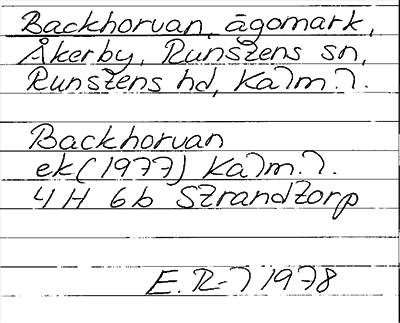 Backhorvan, ägomark,
Åkerby, Runstens sn,
Runstens hd, Kalm. l.
Backhorvan
ek (1977) Kalm. l.
4 H 6b Strandtorp
E. R-l 1978